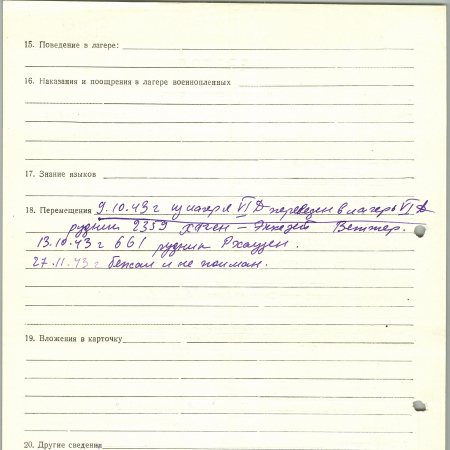 15. Поведение в лагере:
16. Наказания и поощрения в лагере военнопленных
17. Знание языков
18. Перемещения 9.10.43 г из лагеря VI Д переведен в лагерь VI Д
рудник 2359 Хаген - Веттер.
13.10.43 г 661 рудник
27.11.43 г бежал и не пойман.
19. Вложения в карточку
20. Другие сведения